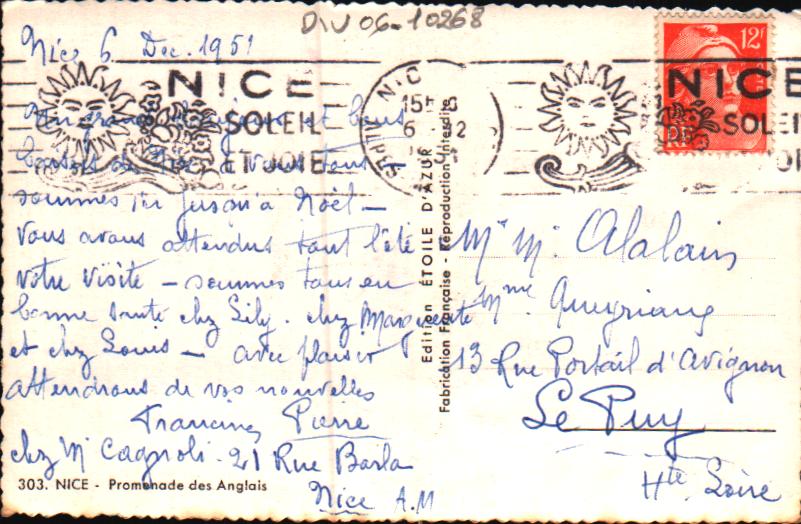 DIV 06-10268
Nice 6 Dec. 1951
12F
RF
NICE
SOLEIL
ET JOIE
NICE
15H
6 12
NICE
SOLEI
Un grand bonjour et bons
baisers de Nice à vous tous -
sommes ici jusqu'à Noël -
Vous avons attendus tout l'été
votre visite - sommes tous en
bonne santé chez Lily. chez Marguerite
et chez Louis - avec plaisir
attendrons de vos nouvelles
Francine, Pierre
chez Mr Cagnoli. 21 Rue Barla
Nice A.M
303. NICE - Promenade des Anglais
Edition ÉTOILE D'AZUR
Fabrication Française - Reproduction Interdite
Mr Mme
Mme
13 Rue Portail d'Avignon
Le Puy
Hte Loire